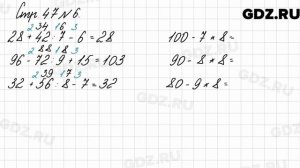 GDZ.RU
Стр. 47 № 6.
2 34 1 6 3
28 + 42 : 7 - 6 = 28
100 - 7 * 8 =
2 88 1 8 3
96 - 72 : 9 + 15 = 103
90 - 8 * 8 =
2 39 1 7 3
32 + 56 : 8 - 7 = 32
80 - 9 * 8 =
GDZ.RU
GDZ.RU